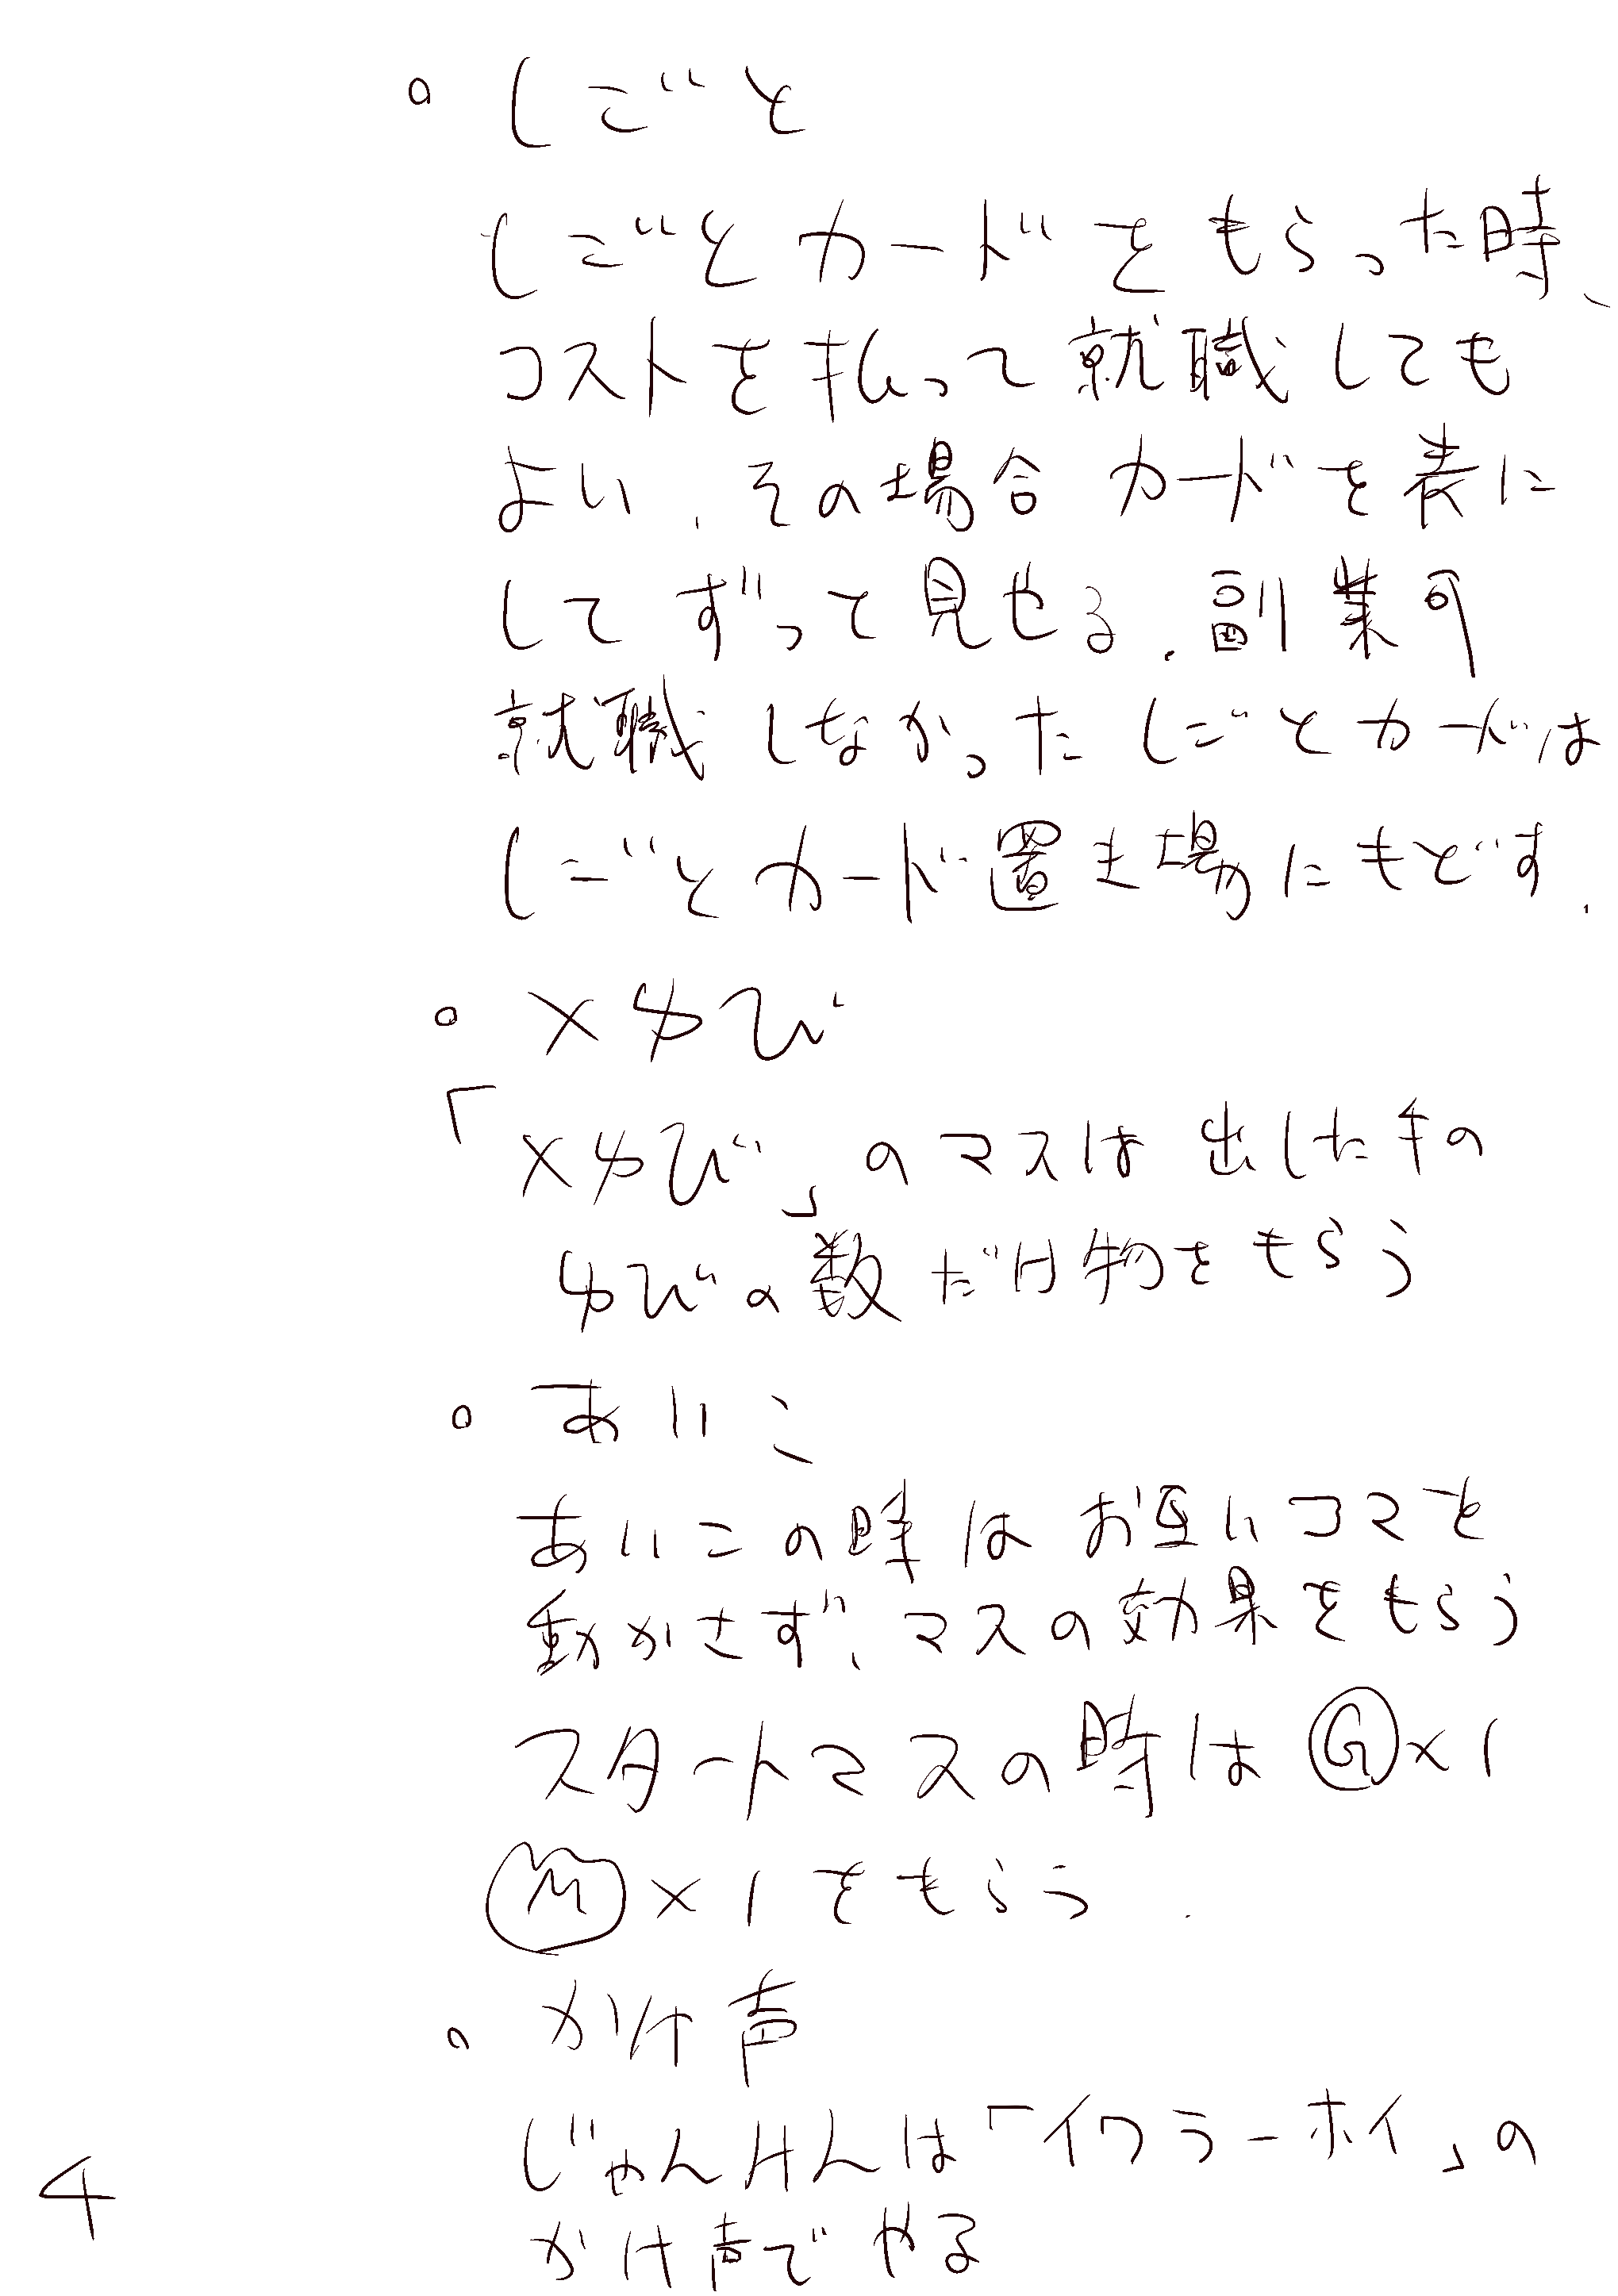 。しごと
しごとカードをもらった時、
コストを払って就職しても
よい、その場合カードを表に
してずっと見せる.副業可
就職しなかったしごとカードは
しごとカード置き場にもどす.
。×ゆび
「×ゆび」のマスは出した手の
ゆびの数だけ物をもらう
。あいこ
あいこの時はお互いコマを
動かさず、マスの効果をもらう
スタートマスの時はⒼ×1
Ⓜ×1をもらう.
。かけ声
じゃんけんは「イワラーホイ」の
かけ声でやる
4